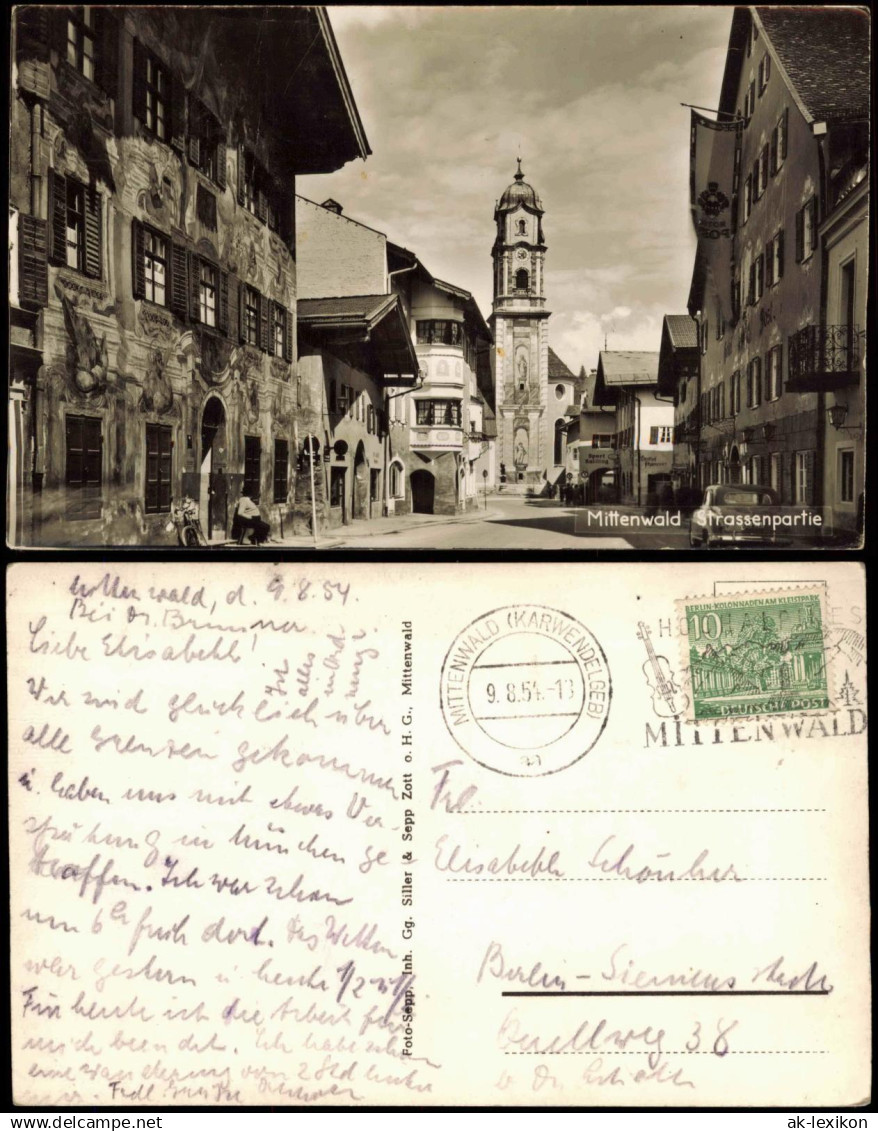 Mittenwald Strassenpartie
Sport
Mittenwald, d. 9.8.54.
Bei Dr. Brunner
Liebe Elisabeth!
Ich
alles
Wir sind glücklich über
alle Grenzen gekommen
u. haben uns mit etwas Ver-
spätung in München ge-
troffen. Ich war schon
um 6h früh dort. Das Wetter
war gestern u heute
Für heute ist die Arbeit für
mich beendet. Ich habe schon
eine Wanderung von 2 Std hinter
Frdl. Grüße
Foto-Sepp, Inh. Gg. Siller & Sepp Zott o. H. G., Mittenwald
MITTENWALD (KARWENDELGEB)
9.8.54.-13
a
BERLIN·KOLONNADEN AM KLEISTPARK
10
DEUTSCHE POST
MITTENWALD
Frl.
Elisabeth
Berlin-Siemensstadt
Quellweg 38
b. Dr.
ak-lexikon